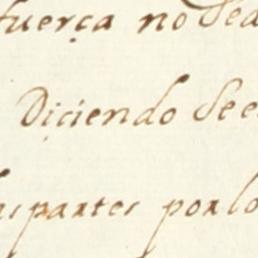 fuerça no Sea
Diciendo Se e
las partes por lo